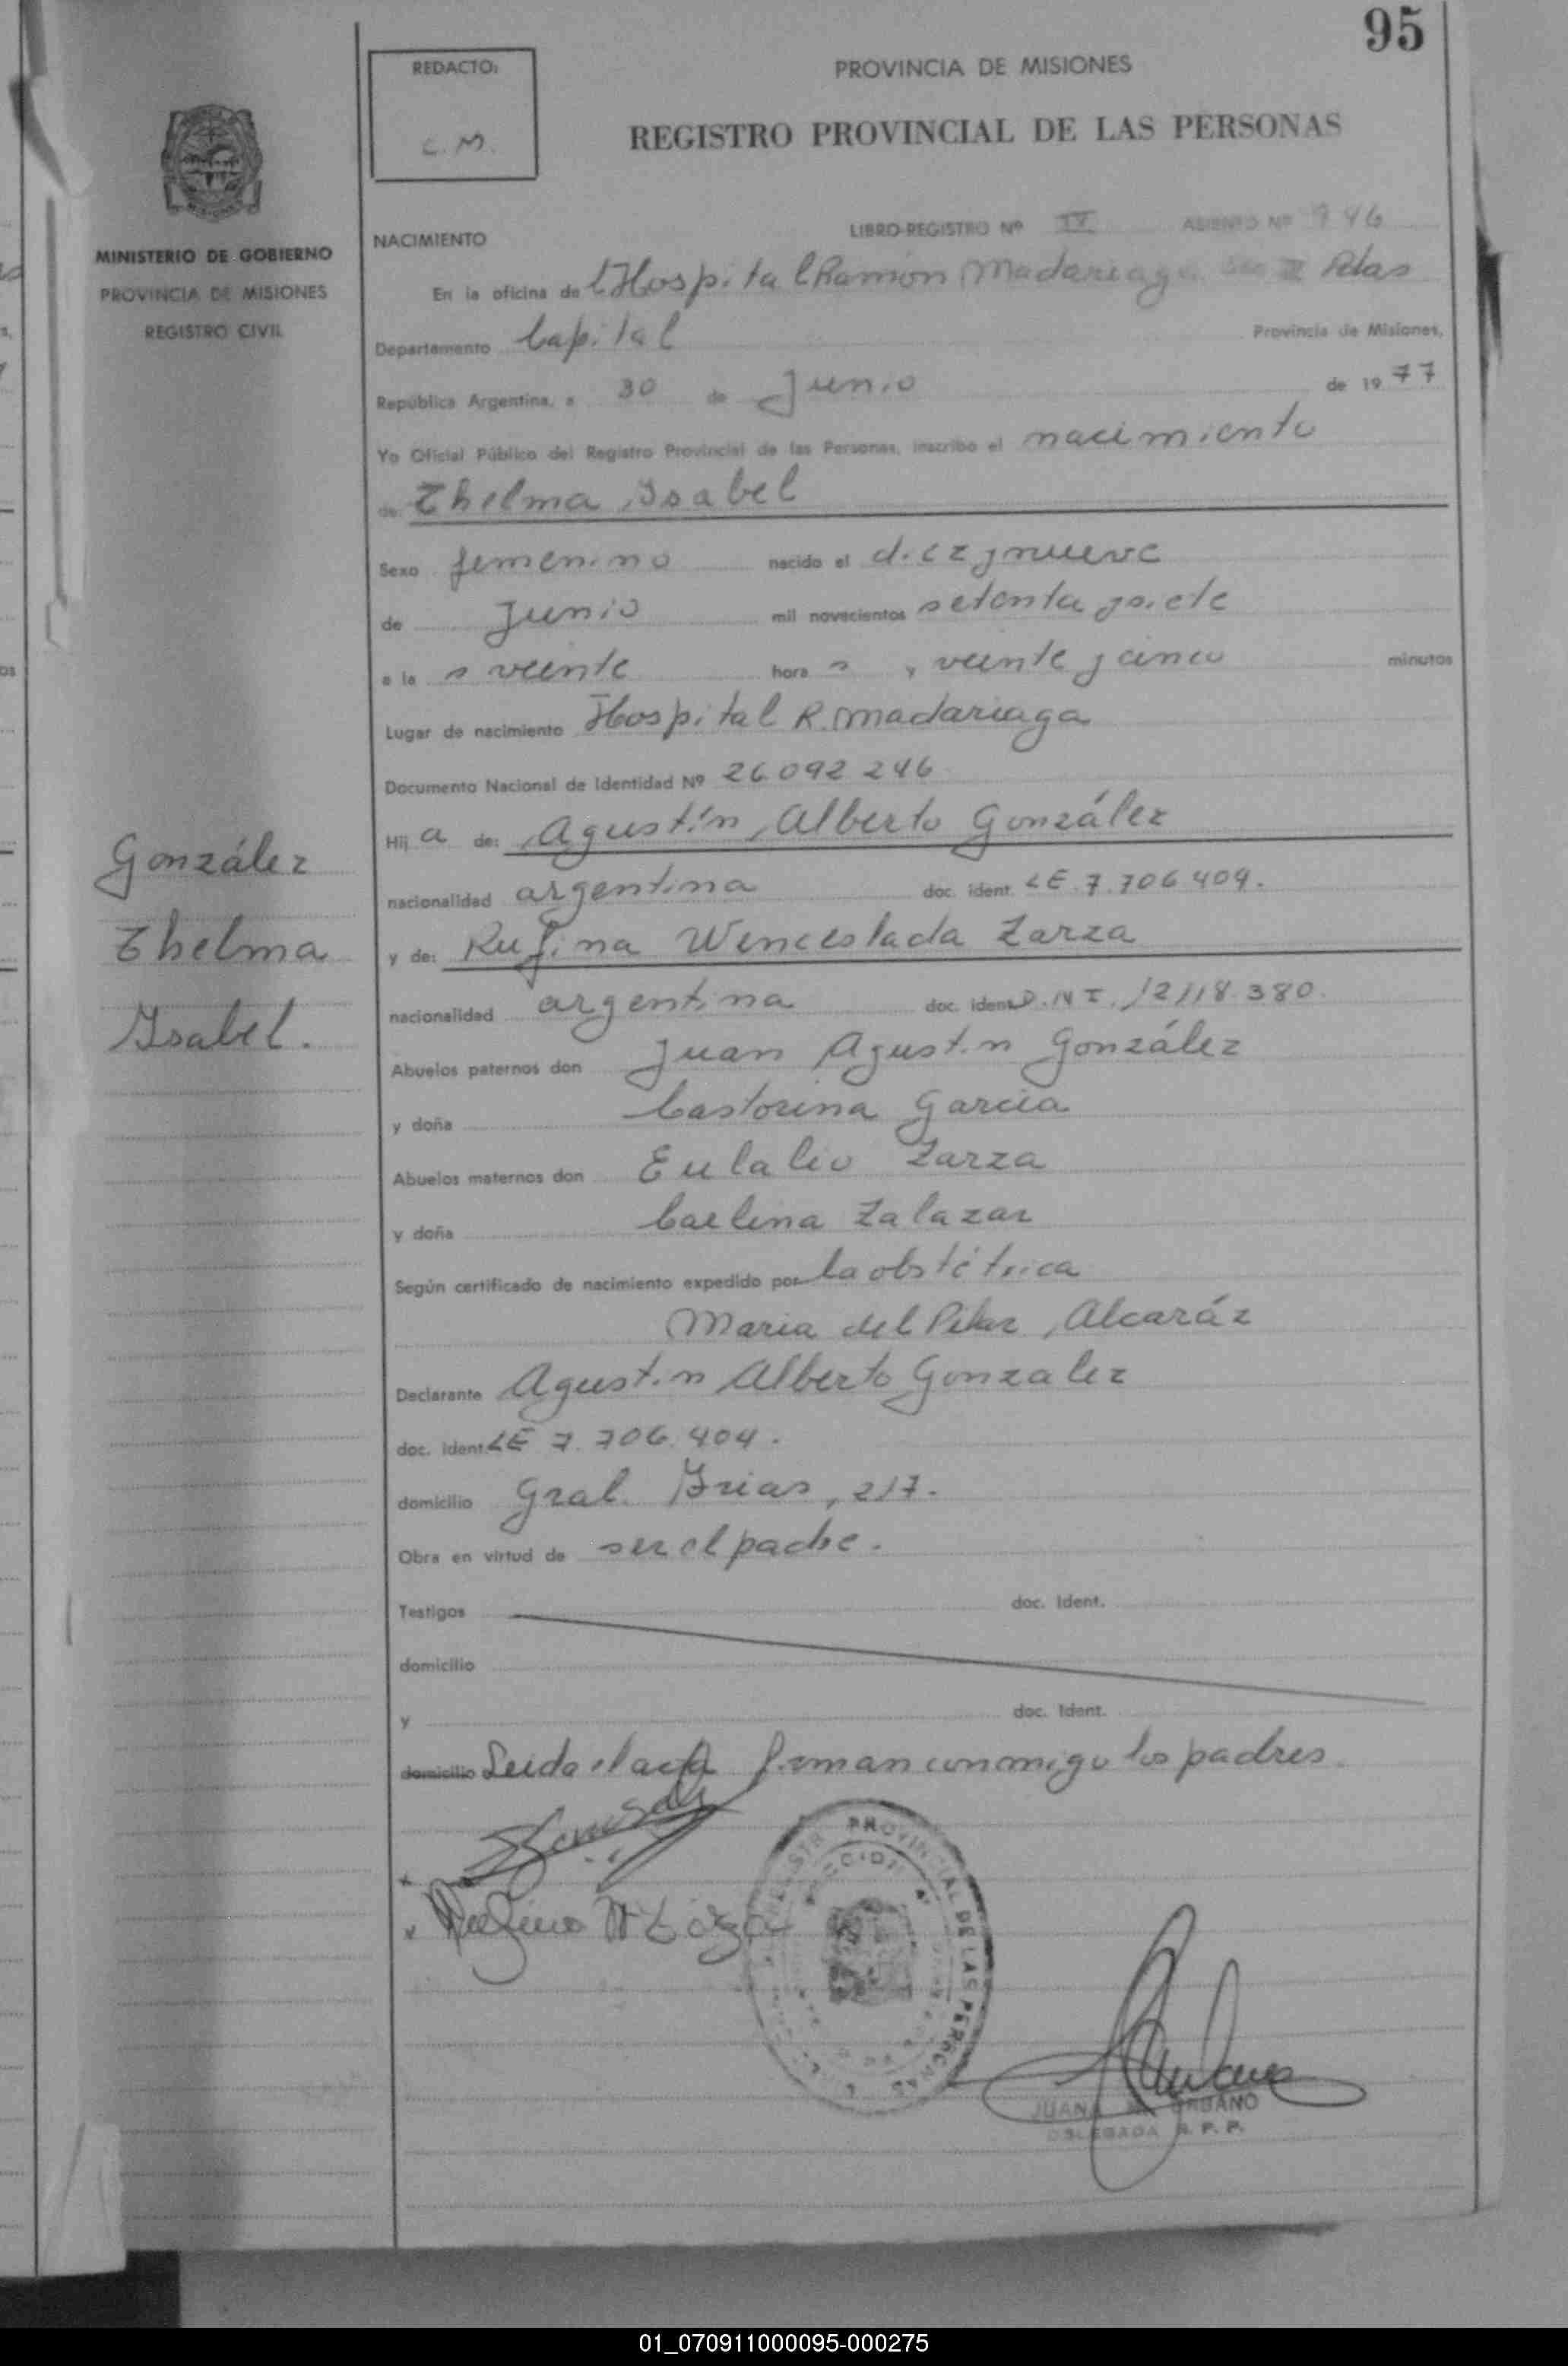 95
REDACTO:
C.M.
PROVINCIA DE MISIONES
REGISTRO PROVINCIAL DE LAS PERSONAS
MINISTERIO DE GOBIERNO
PROVINCIA DE MISIONES
REGISTRO CIVIL
González
Thelma
Isabel.
LIBRO-REGISTRO Nº IV ASIENTO Nº 746
NACIMIENTO
En la oficina de l Hospital Ramón Madariaga Pdas
Departamento Capital Provincia de Misiones,
República Argentina, a 30 de Junio de 19 77
Yo Oficial Público del Registro Provincial de las Personas, inscribo el nacimiento
de: Thelma Isabel
Sexo femenino nacido el diez y nueve
de Junio mil novecientos setenta y siete
a la s veinte hora s y veinte y cinco minutos
Lugar de nacimiento Hospital R. Madariaga
Documento Nacional de Identidad Nº 26.092.246
Hij a de: Agustín Alberto González
nacionalidad argentina doc. ident. LE 7.706.404.
y de: Rufina Wenceslada Zarza
nacionalidad argentina doc. ident. D.N.I. 12118.380.
Abuelos paternos don Juan Agustin González
y doña Castorina Garcia
Abuelos maternos don Eulalio Zarza
y doña Carlina Zalazar
Según certificado de nacimiento expedido por la obstétrica
Maria del Pilar Alcaráz
Declarante Agustin Alberto Gonzalez
doc. ident. LE 7.706.404.
domicilio Gral. Frias, 217.
Obra en virtud de ser el padre.
Testigos doc. ident.
domicilio
y doc. ident.
domicilio Leida el acta firman conmigo los padres.
Rufina W Zarza
PROVINCIAL DE LAS PERSONAS
JUANA URBANO
DELEGADA R. P. P.
01_070911000095-000275